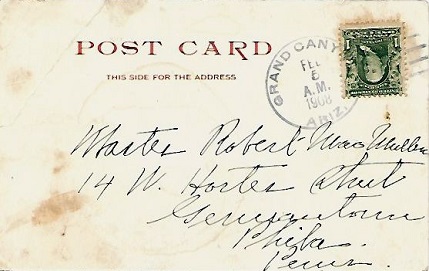 POST CARD
THIS SIDE FOR THE ADDRESS
GRAND CANY
FEB
6
A.M.
1908
ARIZ.
1 1
Master Robert MacMullen
14 W. Horter Street
Germantown
Phila.
Penna.